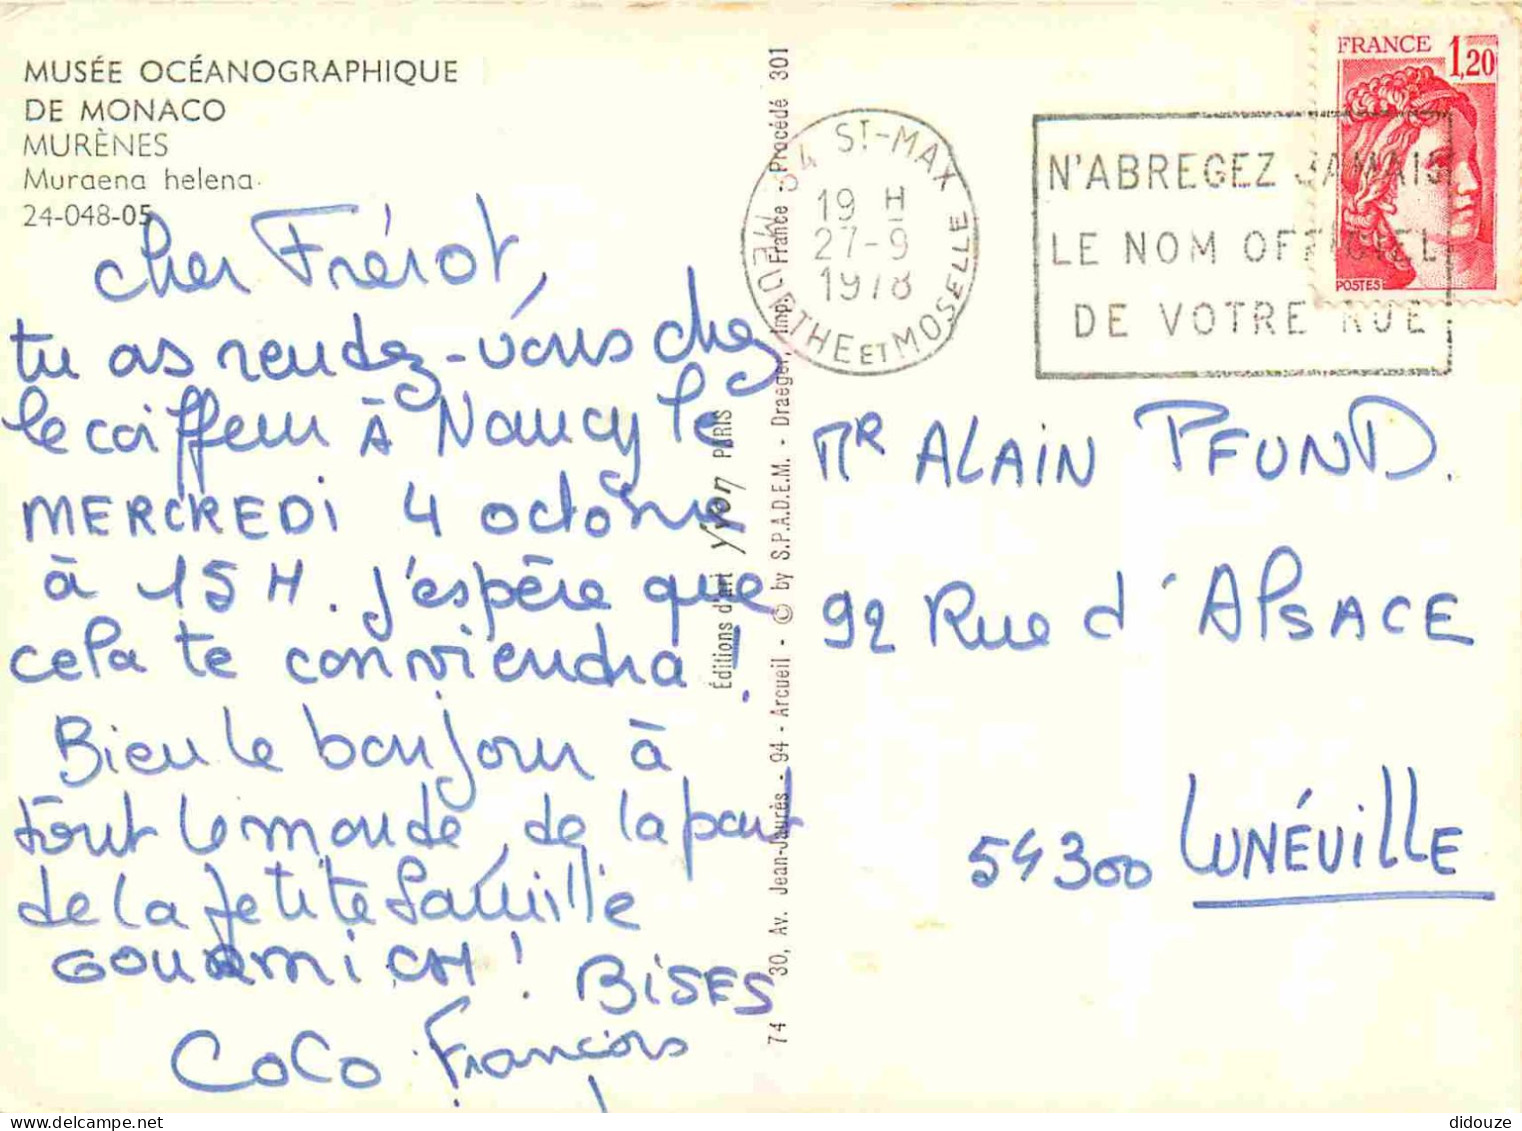 MUSÉE OCÉANOGRAPHIQUE
DE MONACO
MURÈNES
Muraena helena
24-048-05
cher Frérot,
tu as rendez-vous chez
le coiffeur à Nancy le
MERCREDI 4 octobre
à 15 H. j'espère que
cela te conviendra !
Bien le bonjour à
tout le monde, de la part
de la petite famille
GOURMICH ! BISES
COCO François
Éditions d'art Yvon PARIS
74 30, Av. Jean-Jaurès - 94 - Arcueil - © by S.P.A.D.E.M. - Draeger, Imp. France - Procédé 301
54 ST-MAX
19 H
27-9
1978
MEURTHE ET MOSELLE
N'ABREGEZ JAMAIS
LE NOM OFFICIEL
DE VOTRE RUE
FRANCE 1,20
POSTES
Mr ALAIN PFUND.
92 Rue d'ALSACE
54300 LUNÉVILLE
didouze